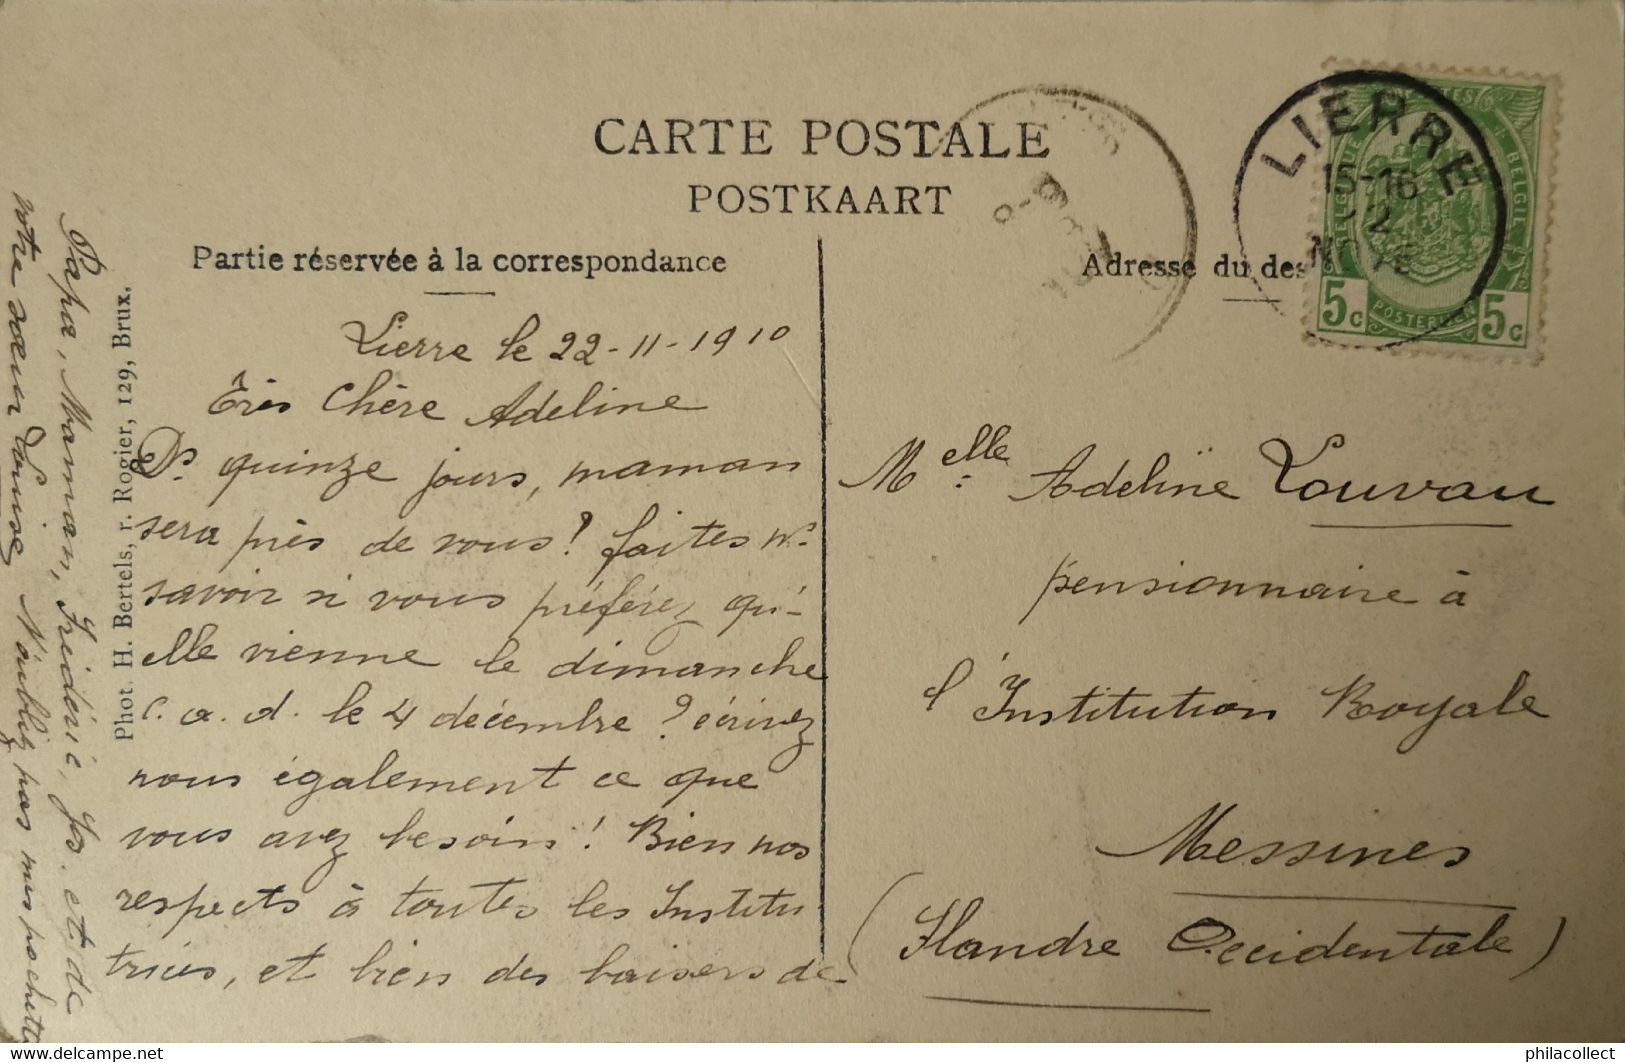 CARTE POSTALE
POSTKAART
Partie réservée à la correspondance
Adresse du des
LIERRE
15-16
BELGIQUE
BELGIE
POSTERIJEN
5c 5c
8-9
Lierre le 22-11-1910
Très Chère Adeline
Ds. quinze jours, maman
sera près de vous! faites ns.
savoir si vous préférez qu'-
elle vienne le dimanche
c. a. d. le 4 décembre? écrivez
nous également ce que
vous avez besoin! Bien nos
respects à toutes les Institu
trices, et bien des baisers de-
Papa, Maman, Frédéric, Jos. et de
votre sœur Louise N'oubliez pas mes pochettes
Phot. H. Bertels, r. Rogier, 129, Brux.
Melle. Adeline Louvau
pensionnaire à
l'Institution Royale
Messines
(Flandre Occidentale)
delcampe.net
philacollect
philacollect